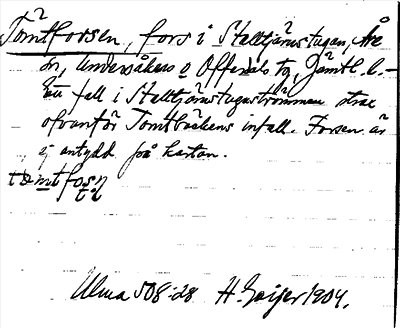 Tomtforsen, fors i Stalltjärnstugan, Åre
sn, Undersåkers o Offerdals tg, Jämtl. l. —
Ett fall i Stalltjärnstuguströmmen strax
ofvanför Tomtbäckens infall. Forsen är
ej antydd på kartan.
Ulma 508:28 H. Geijer 1904.